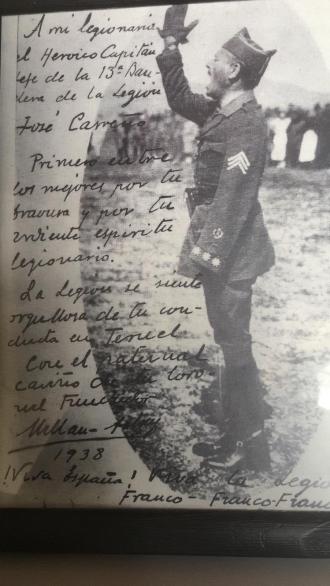 A mi legionario
el Heroico Capitán
Jefe de la 13ª Ban-
dera de la Legión
José Carreño
Primero entre
los mejores por tu
bravura y por tu
ardiente espiritu
legionario.
La Legion se siente
orgullosa de tu con-
ducta en Teruel
Con el paternal
cariño de tu Coro-
nel Fundador
Millan-Astray
1938
¡Viva España! Viva la Legio
Franco-Franco-Franc